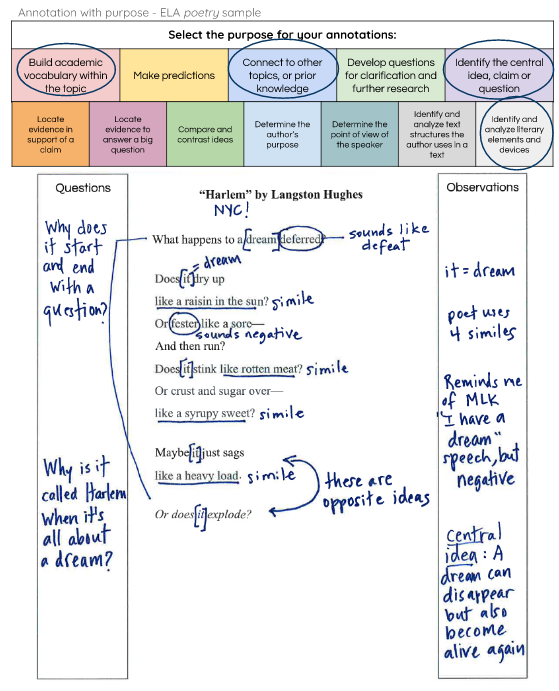 Annotation with purpose - ELA poetry sample
Select the purpose for your annotations:
Build academic
vocabulary within
the topic
Make predictions
Connect to other
topics, or prior
knowledge
Develop questions
for clarification and
further research
Identify the central
idea, claim or
question
Locate
evidence in
support of a
claim
Locate
evidence to
answer a big
question
Compare and
contrast ideas
Determine the
author's
purpose
Determine the
point of view of
the speaker
Identify and
analyze text
structures the
author uses in a
text
Identify and
analyze literary
elements and
devices
Questions
Why does
it start
and end
with a
question?
Why is it
called Harlem
when it's
all about
a dream?
"Harlem" by Langston Hughes
NYC!
What happens to a [dream] deferred? sounds like
defeat
= dream
Does [it] dry up
like a raisin in the sun? simile
Or fester like a sore—
sounds negative
And then run?
Does [it] stink like rotten meat? simile
Or crust and sugar over—
like a syrupy sweet? simile
Maybe [it] just sags
like a heavy load. simile
there are
opposite ideas
Or does [it] explode?
Observations
it = dream
poet uses
4 similes
Reminds me
of MLK
"I have a
dream"
speech, but
negative
central
idea: A
dream can
disappear
but also
become
alive again